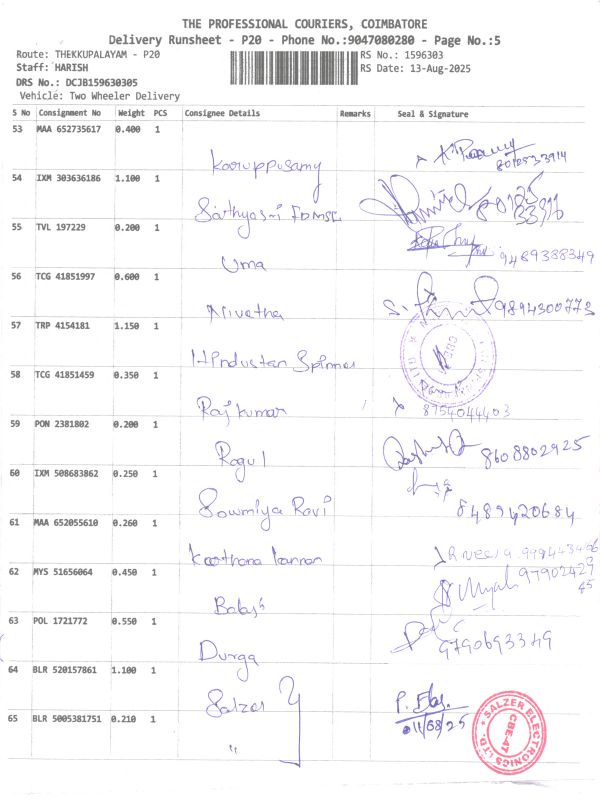 THE PROFESSIONAL COURIERS, COIMBATORE
Delivery Runsheet - P20 - Phone No.:9047080280 - Page No.:5
Route: THEKKUPALAYAM - P20 RS No.: 1596303
Staff: HARISH RS Date: 13-Aug-2025
DRS No.: DCJB159630305
Vehicle: Two Wheeler Delivery
S No Consignment No Weight PCS Consignee Details Remarks Seal & Signature
53 MAA 652735617 0.400 1
Karuppusamy
54 IXM 303636186 1.100 1
Sathyasri
55 TVL 197229 0.200 1
Uma 9489388349
56 TCG 41851997 0.600 1
Nivetha 9894300773
57 TRP 4154181 1.150 1
Hindustan Spinners
58 TCG 41851459 0.350 1
Rajkumar 8754044403
59 PON 2381802 0.200 1
Ragul 8608802925
60 IXM 508683862 0.250 1
Sowmiya Ravi 8489420684
61 MAA 652055610 0.260 1
Keerthana Kannan
62 MYS 51656064 0.450 1
Balaji 97902429
45
63 POL 1721772 0.550 1
Durga 9790693349
64 BLR 520157861 1.100 1
Salzer
65 BLR 5005381751 0.210 1
" 11/08/25
SALZER ELECTRONICS LTD.
CBE-47